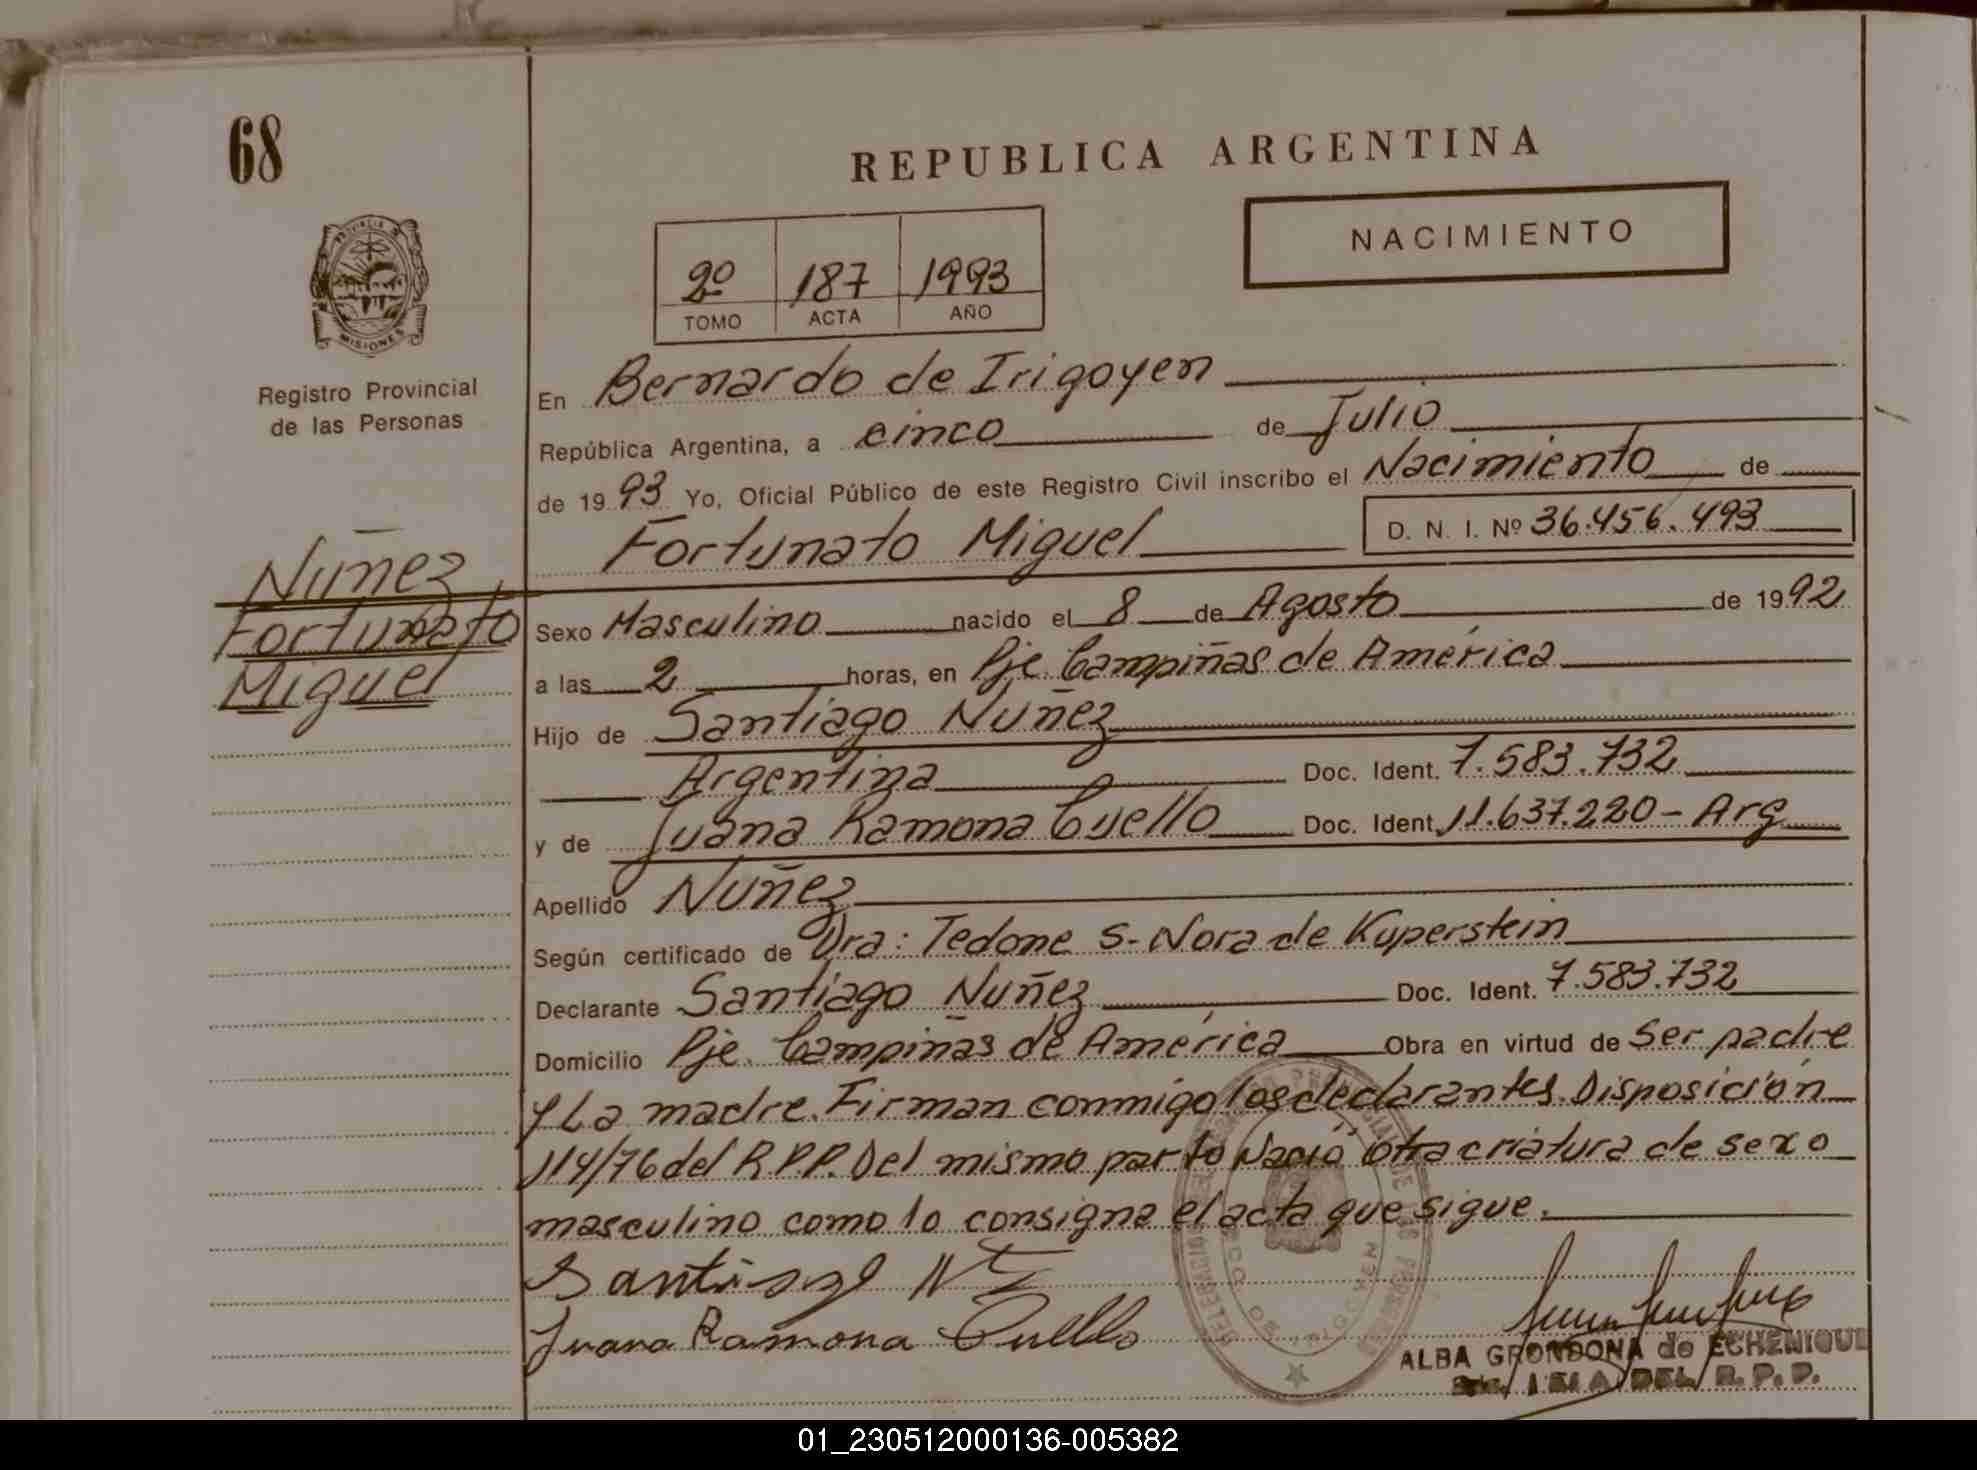 68
REPUBLICA ARGENTINA
NACIMIENTO
2º 187 1993
TOMO ACTA AÑO
PROVINCIA DE
MISIONES
Registro Provincial
de las Personas
En Bernardo de Irigoyen
República Argentina, a cinco de Julio
de 1993 Yo, Oficial Público de este Registro Civil inscribo el Nacimiento de
Fortunato Miguel D. N. I. Nº 36.456.493
Nuñez
Fortunato
Miguel
Sexo Masculino nacido el 8 de Agosto de 1992
a las 2 horas, en Pje. Campiñas de América
Hijo de Santiago Nuñez
Argentina Doc. Ident. 7.583.732
y de Juana Ramona Cuello Doc. Ident. 11.637.220 - Arg
Apellido Nuñez
Según certificado de Dra: Tedone S- Nora de Kuperstein
Declarante Santiago Nuñez Doc. Ident. 7.583.732
Domicilio Pje. Campiñas de América Obra en virtud de Ser padre
y La madre. Firman conmigo los declarantes. Disposición
114/76 del R.P.P. Del mismo parto Nació otra criatura de sexo
masculino como lo consigna el acta que sigue.
Juana Ramona Cuello
ALBA GRONDONA de ECHENIQUE
DEL R. P. P.
01_230512000136-005382